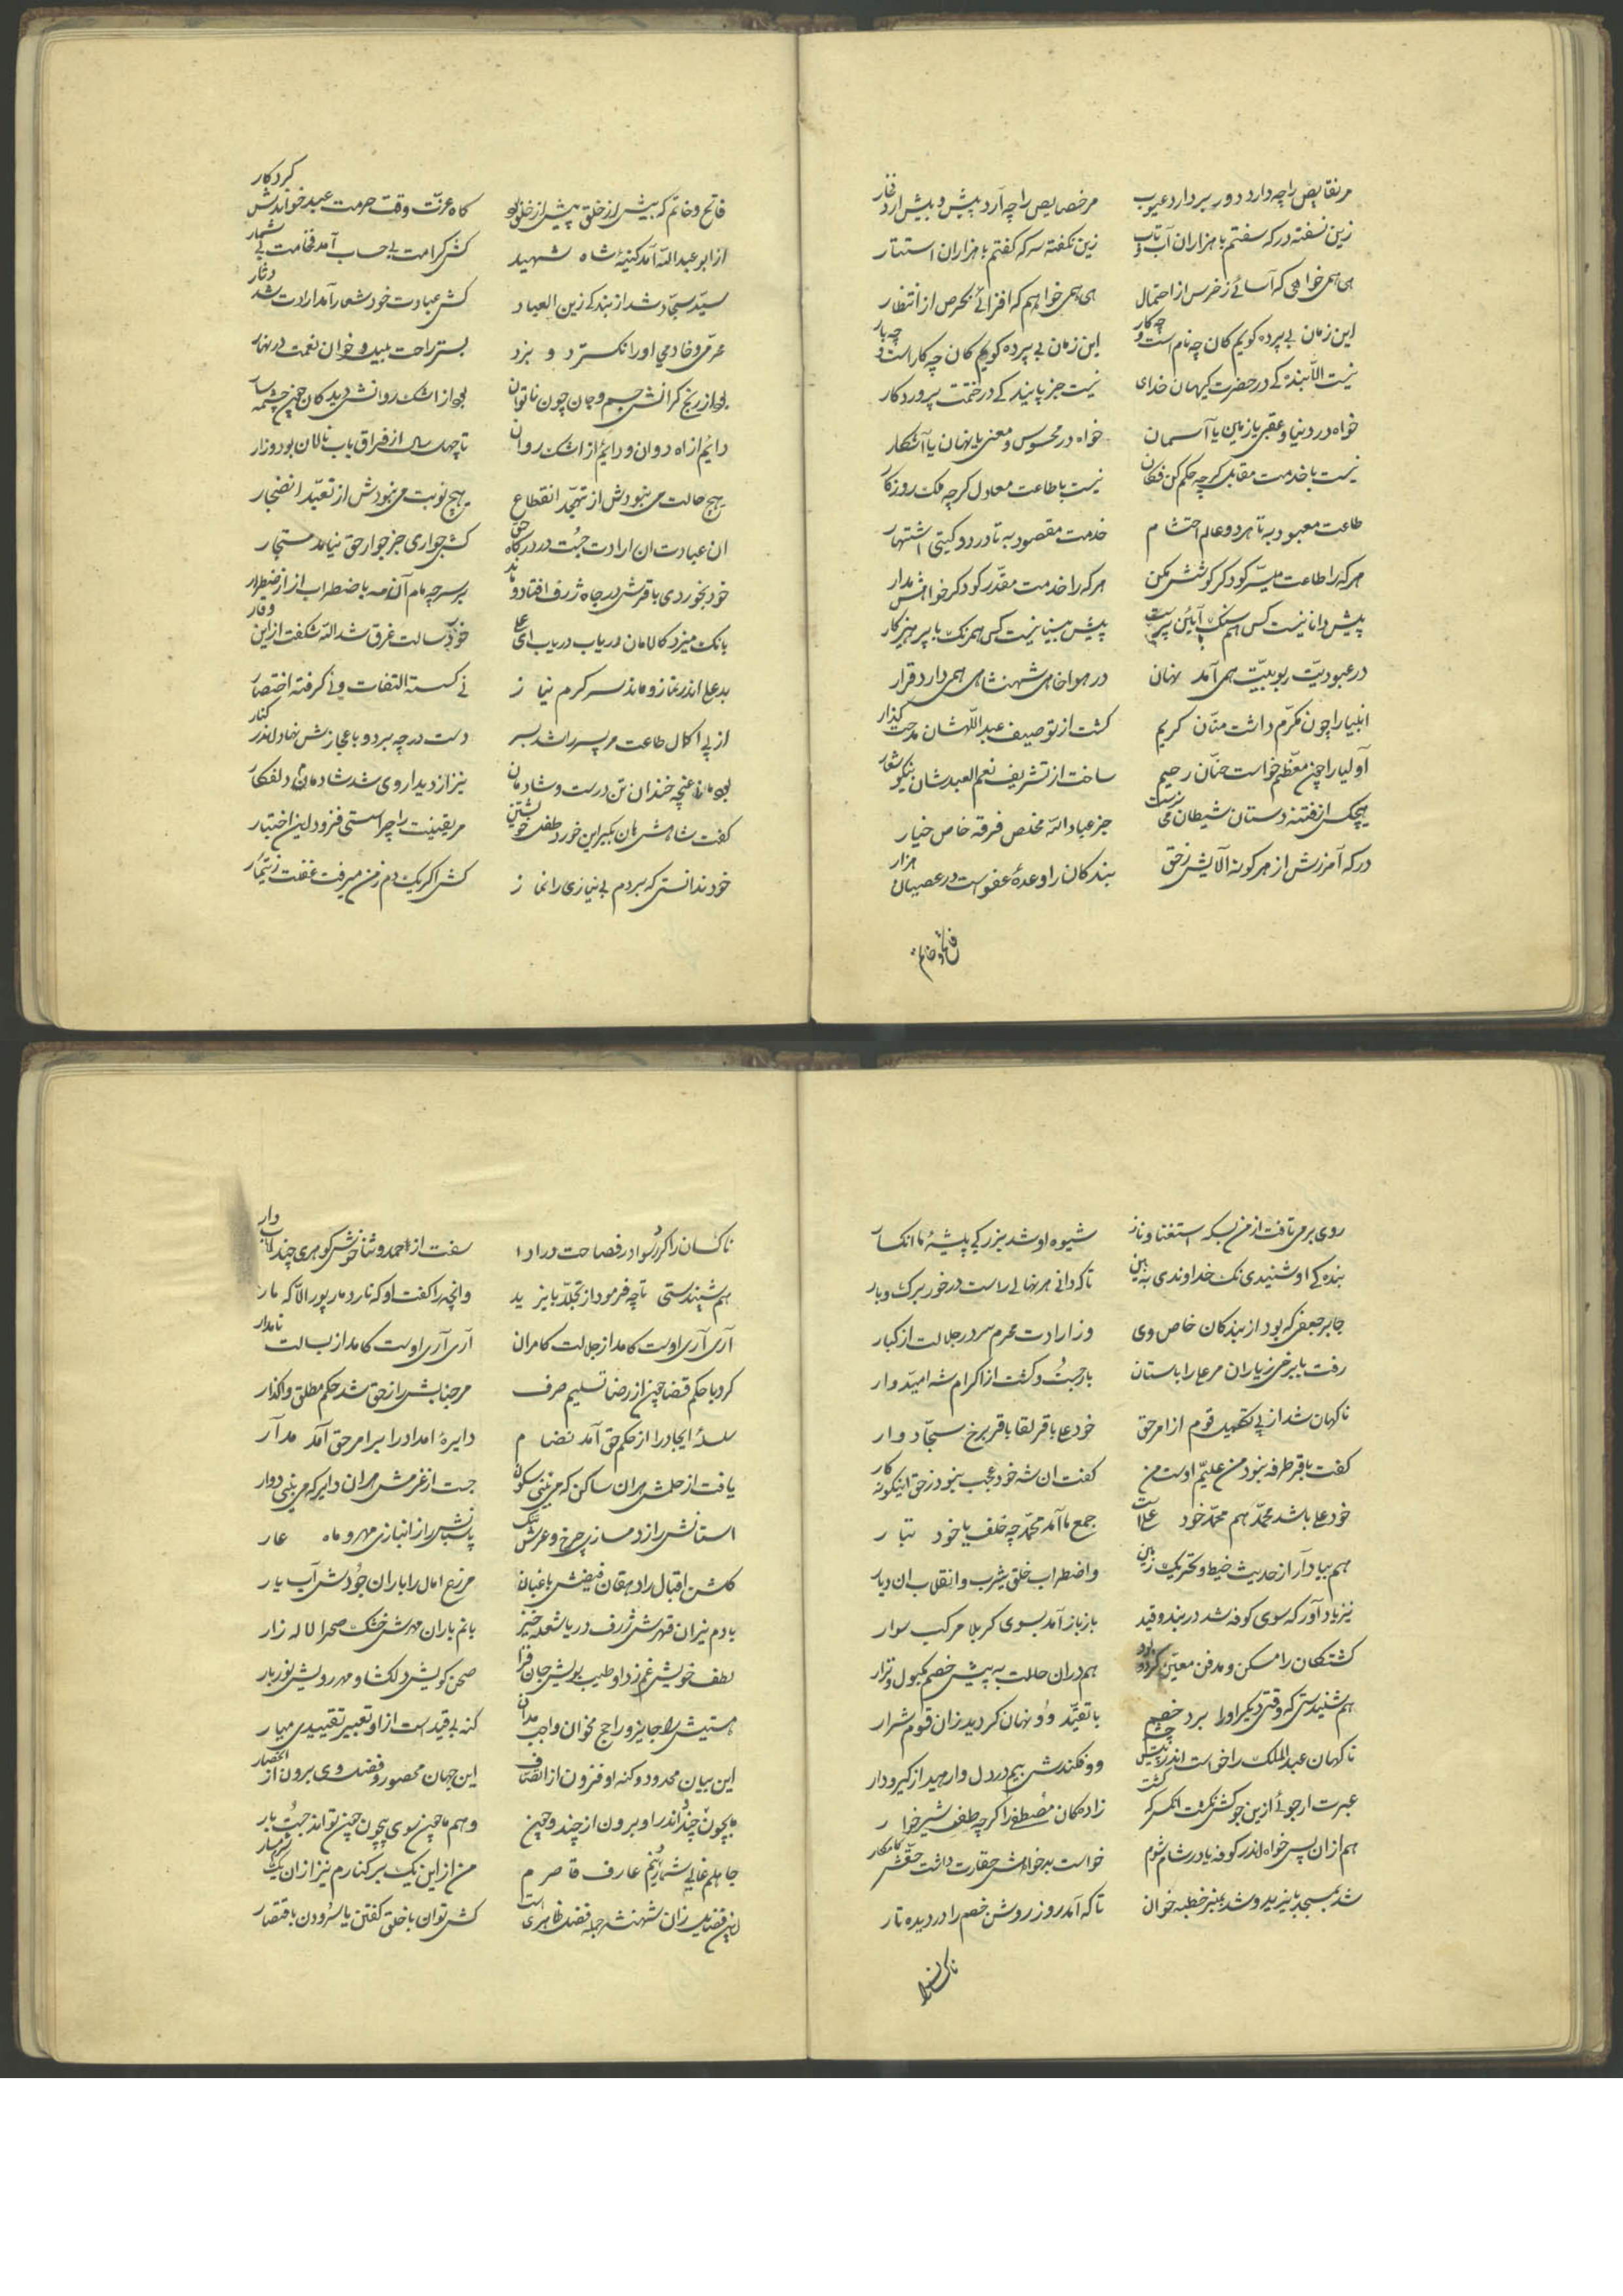 مر نقایص را چه دارد دور بردارد عیوب مر خصایص را چه آرد پیش و بیش آرد فخار
زین نسفته در که سفتم با هزاران آب و تاب زین نگفته سر که گفتم با هزاران استتار
هی همی خواهی که آسائی ز خرس از احتمال هی همی خواهم که افزائی بحرص از انتظار
این زمان بی پرده گویم کان چه نام است و چه کار این زمان بی پرده گویم کان چه کار است و چه بار
نیست الا بندگی در حضرت کیهان خدای نیست جز پایندگی در خدمت پروردگار
خواه در دنیا و عقبی یا زمین یا آسمان خواه در محسوس و معنی یا نهان یا آشکار
نیست با خدمت مقابل گرچه حکم کن فکان نیست با طاعت معادل گرچه ملک روزگار
طاعت معبود به تا هر دو عالم احتشام خدمت مقصود به تا در دو گیتی اشتهار
هر که را طاعت میسر گو دگر کوشش مکن هر که را خدمت مقدر گو دگر خواهش مدار
پیش دانا نیست کس هم سنگ با آیین پرست پیش بینا نیست کس همرنگ با پرهیزکار
در عبودیت ربوبیت همی آمد نهان در هواخواهی شهنشاهی همی دارد قرار
انبیا را چون مکرم داشت منان کریم گشت از توصیف عبداللهشان مدحت گذار
اولیا را چون معظم خواست حنان رحیم ساخت از تشریف نعم العبدشان نیکو شعار
هیچکس از فتنه دستان شیطان می نرست جز عباد الله مخلص فرقه خاص خیار
در که آمرزش از هر گونه آلایش ز حق بندگان را وعده عفو است در عصیان هزار
فاتح و خاتم
فاتح و خاتم که بیش از خلق و پیش از خلق بود گاه عزت وقت حرمت عبد خواندش کردگار
از ابو عبدالله آمد کنیهٔ شاه شهید کش کرامت بی حساب آمد فخامت بی شمار
سید سجاد شد از بندگی زین العباد کش عبادت خود شعار آمد ارادت شد دثار
محرمی و خادمی او را نگسترد و نبرد بستر راحت بلیل و خوان نعمت در نهار
بود از رنج گرانش جسم و جان چون ناتوان بود از اشک روانش دیدگان چون چشمه سار
دایم از آه دوان و دایم از اشک روان تا چهل سال از فراق باب نالان بود و زار
هیچ حالت می نبودش از تهجد انقطاع هیچ نوبت می نبودش از تعبد انضجار
ان عبادت ان ارادت جست در درگاه حق کش جواری جز جوار حق نیامد مستجار
خود بخوردی باقرش در چاه ژرف افتاد و ماند بر سر چه مام آن مه با ضطراب از اضطرار
بانگ میزد کالامان دریاب دریاب ای علی خورد سالت غرق شد الله شگفت از این وقار
بد علی اندر نماز و ماند سر گرم نیاز نی گسسته التفات و نی گرفته اختصار
از پی اکمال طاعت مر پسر را شد بسر دست در چه برد و با اعجاز بنهاد اندر کنار
بود مانا غنچه خندان تن درست و شادمان نیز از دیدار وی شد شادمان دلفکار
گفت شاهش هان بگیر این خورد طفل خویشتن مر یقینت را چرا سستی فزود این اختبار
خود ندانستی که بردم بی نیازی را نماز کش اگر یک دم ز من میرفت غفلت ز ایتمار
روی بر می تافت از من بسکه استغنا و ناز شیوه او شد بزرگی پیشهٔ ما انکسار
بنده کی او شنیدی نک خداوندی به بین تا که دانی هر نهالی راست در خور برگ و بار
جابر جعفی که بود از بندگان خاص وی وز ارادت محرم سر در جلالت از کبار
رفت با برخی ز یاران مر علی را باستان بار جست و گشت از اکرام شه امیدوار
ناگهان شد از پی تفهیم قوم از امر حق خود علی باقر لقا باقر برخ سجاد وار
گفت باقر طرفه نبود من علیم اوست من گفت ان شه خود عجب نبود ز حق اینگونه کار
خود علی باشد محمد هم محمد خود علیست جمع ما آمد محمد چه خلف یا خود تبار
هم بیاد آر از حدیث خیط و تحریک زمین واضطراب خلق یثرب و انقلاب ان دیار
نیز یاد آور که سوی کوفه شد در بند و قید باز باز آمد بسوی کربلا مرکب سوار
کشتگان را مسکن و مدفن معین کرد و بود هم دران حالت به پیش خصم مکبول و نزار
هم شنیدستی که وقتی دیگر او را برد خصم با تقید وو نهان گردید زان قوم شرار
ناگهان عبدالملک را خواست اندر پیش چشم وو فکندش بیم در دل وارهید از گیر و دار
عبرت ار جوئی ازین جو کش نکشت انکس که کشت زادگان مصطفی را گرچه طفل شیرخوار
هم از ان پس خواه اندر کوفه یا در شام شوم خواست بدخواهش حقارت داشت حقش کامکار
شد بمسجد با یزید و شد بمنبر خطبه خوان تا که آمد روز روشن خصم را در دیده تار
ناکسان را
ناکسان را کرد رسوا در فصاحت در ادا سفت از احمد و ثنا خوش گوهری چند ابدار
هم شنیدستی تا چه فرمود از تجلد با یزید وانچه را گفت او که نارد مار پور الا که مار
آری آری اوست کامد از جلالت کامران آری آری اوست کامد از بسالت نامدار
کرد با حکم قضا چون از رضا تسلیم صرف مر جنابش را ز حق شد حکم مطلق واگذار
سلسلهٔ ایجاد را از حکم حق آمد نظام دایرهٔ امداد را بر امر حق آمد مدار
یافت از حلمش مران ساکن که می بینی سکون جست از عزمش مران دایر که می بینی دوار
استانش را ز دمسازی چرخ و عرش ننگ پاسبانش را ز انبازی مهر و ماه عار
گلشن اقبال را دهقان فیضش باغبان مزرع امال را باران جودش آب یار
با دم نیران قهرش ژرف دریا شعله خیز با نم باران مهرش خشک صحرا لاله زار
لطف خویش غم زدا و طیب بویش جان فزا صحن کویش دلگشا و مهر رویش نور بار
هستیش را جایز و راجح مخوان واجب مدان کنه بی قید است از او تعبیر تقییدی میار
این بیان محدود و کنه او فزون از اتصاف این جهان محصور و فضل وی برون از انحصار
ما بچون و چند اندر او برون از چند و چون وهم ما چون سوی بیچون چون تواند جست بار
جاهلم غالی شمارد بهم عارف قاصرم من از این یک بر کنارم نیز از ان یک شرمسار
این فضایل زان شهنشه جمله فضل ظاهری است کش توان با خلق گفتن یا سرودن باقتصار